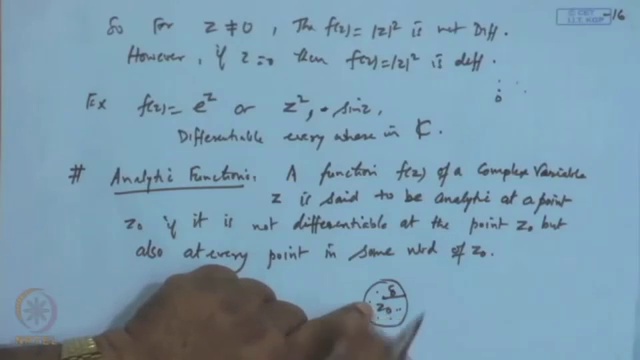 So For z ≠ 0, The f(z) = |z|² is not Diff.
However, if z=0 then f(z) = |z|² is diff.
Ex f(z) = e^z or z², sin z,
Differentiable every where in ℂ.
# Analytic Function: A function f(z) of a Complex Variable
z is said to be analytic at a point
z0 if it is not differentiable at the point z0 but
also at every point in some nbd of z0.
δ
z0
0
© CET
I.I.T. KGP
-16